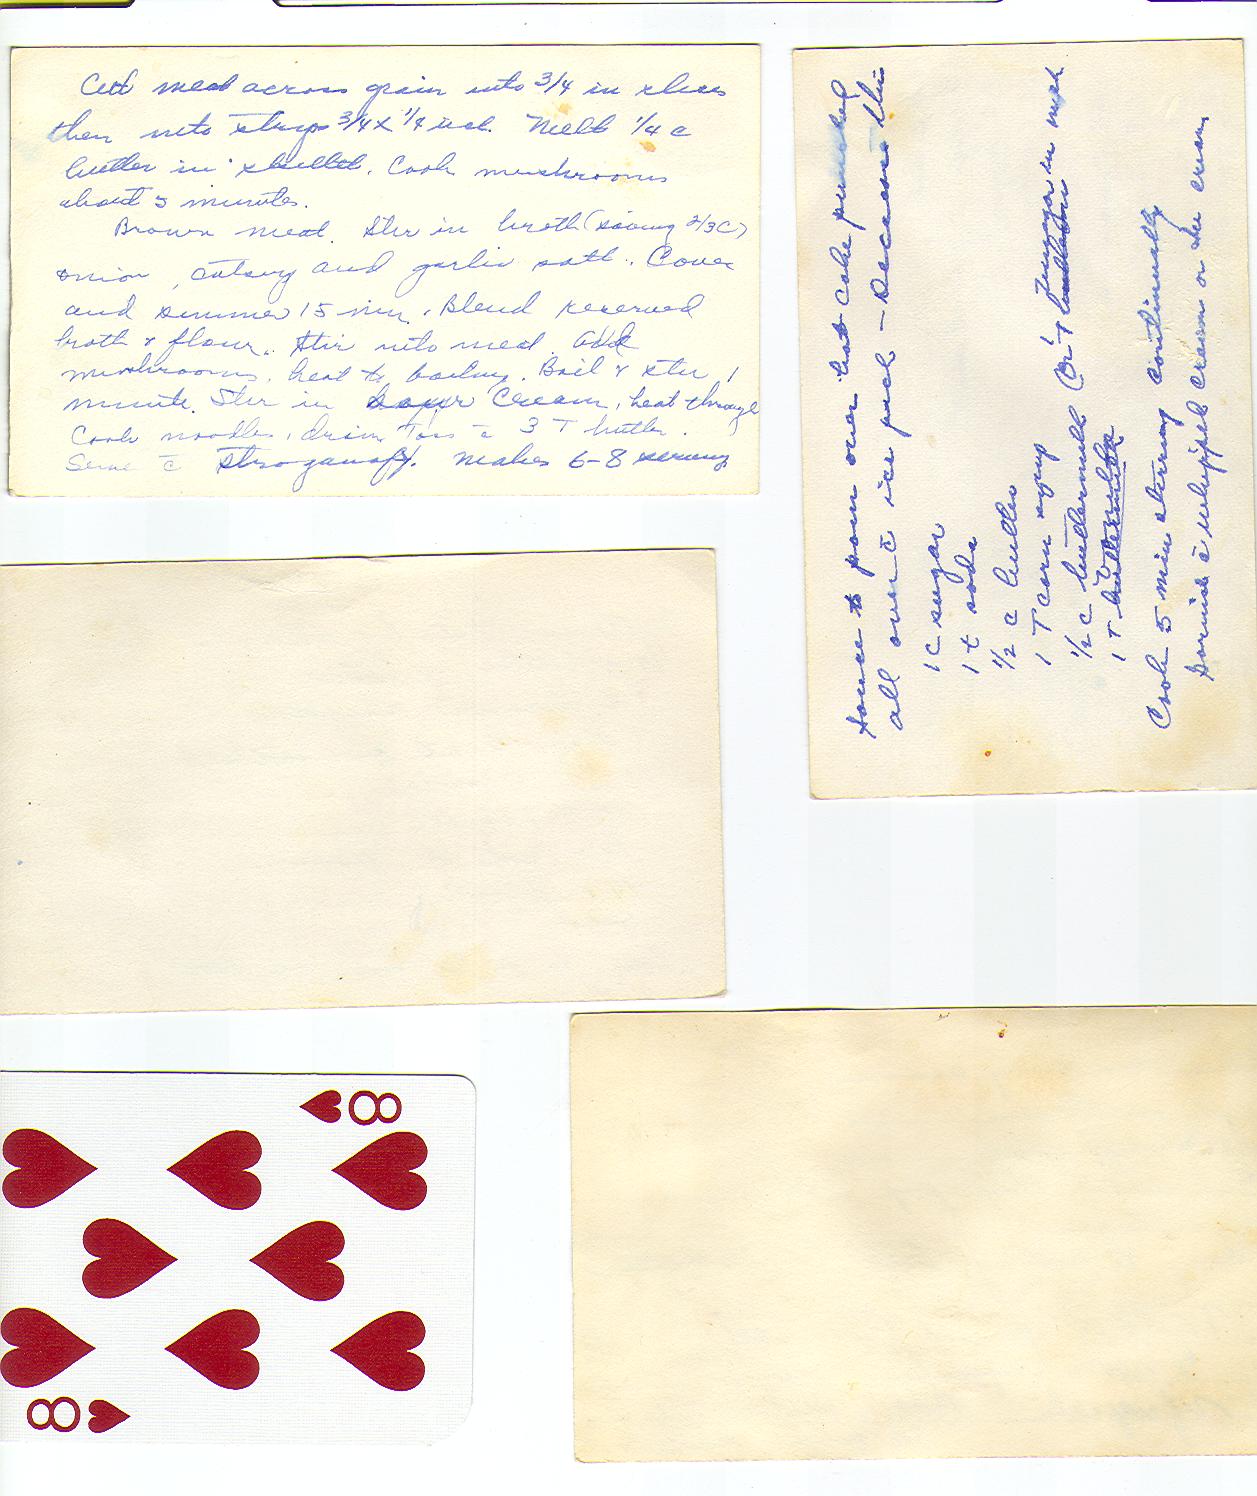 Cut meat across grain into 3/4 in slices
then into strips 3/4 x 1/4 inch. Melt 1/4 c
butter in skillet. Cook mushrooms
about 5 minutes.
Brown meat. Stir in broth (saving 2/3 C)
onion, catsup and garlic salt. Cover
and simmer 15 min. Blend reserved
broth & flour. Stir into meat. Add
mushrooms, heat to boiling. Boil & stir 1
minute. Stir in sour Cream, heat through
Cook noodles, drain Toss c̄ 3 T butter.
Serve c̄ Stroganoff. Makes 6-8 serving
Sauce to pour over hot cake punched
all over c̄ ice pick - Because this
1 C sugar
1 t soda
1/2 c butter
1 T corn syrup
1/2 c buttermilk (Or 1 T vinegar in milk
1 T vanilla
Cook 5 min stirring continually
Garnish c̄ whipped cream or ice cream
8
8